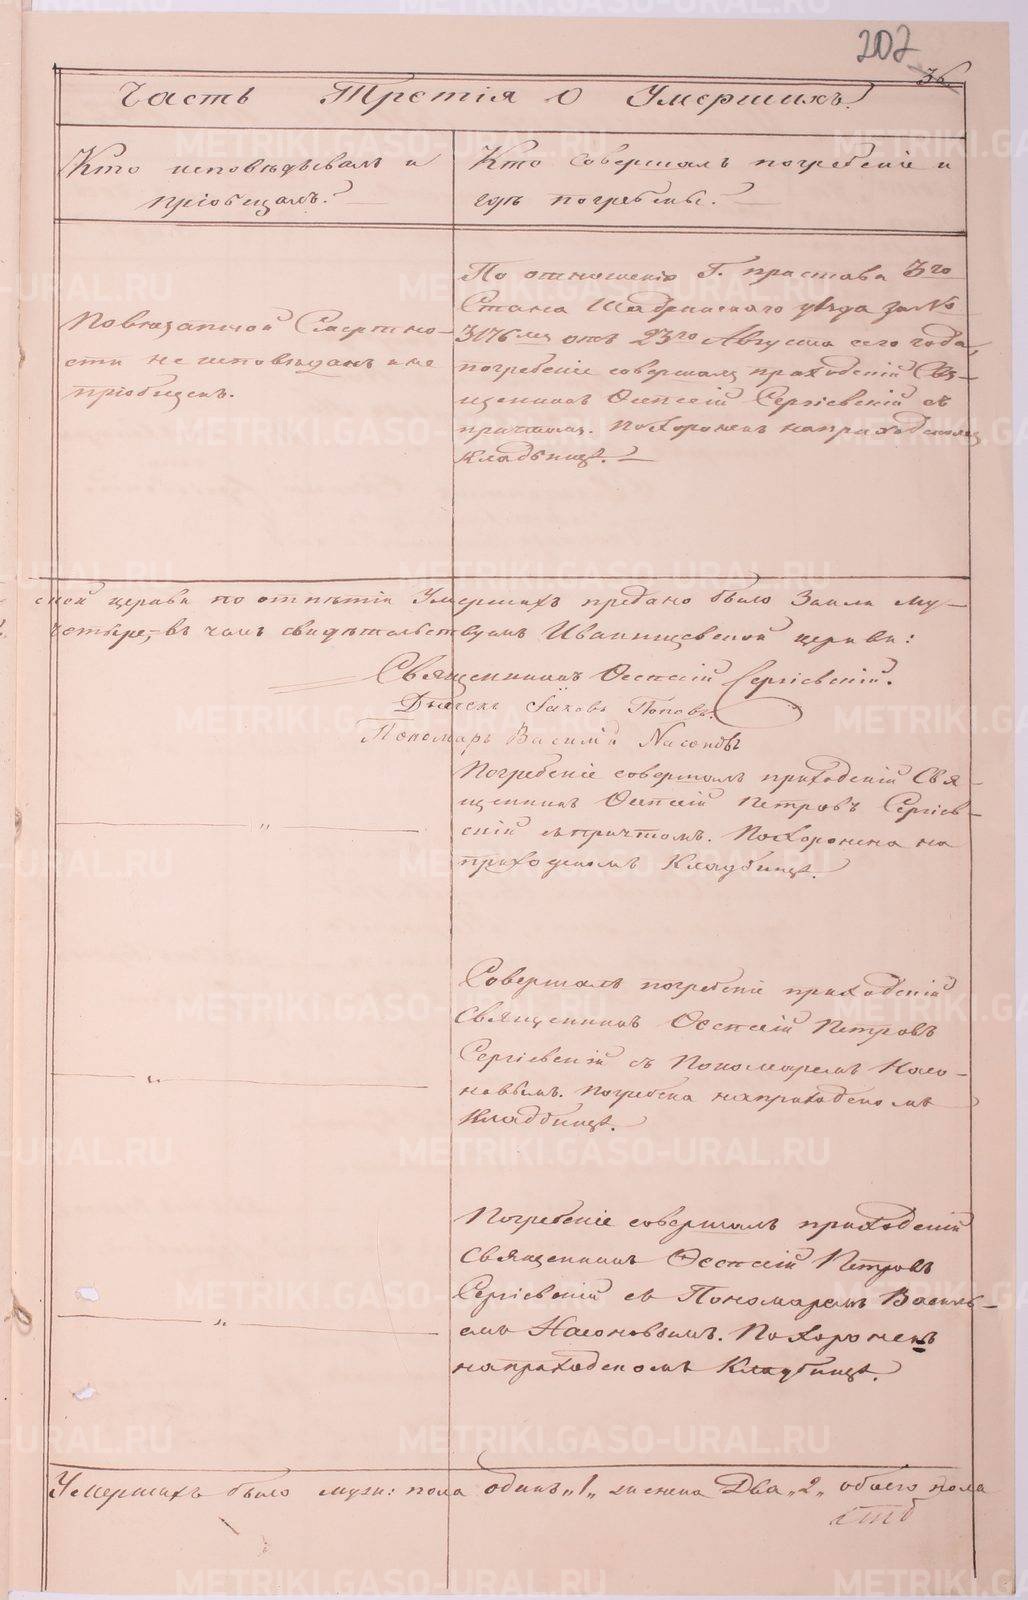 202
36
Часть Третія О Умершихъ.
Кто исповѣдывалъ и
пріобщалъ?
Кто совершалъ погребеніе и
гдѣ погребены?
Повнѣзапной Смертно-
сти не исповѣданъ и не
пріобщенъ.
По отношенію Г. пристава 3го
Стана Шадринскаго уѣзда за No
3176мъ отъ 23го Августа сего года,
погребеніе совершалъ приходскій Свя-
щенникъ Сергіевскій съ
причтомъ. Похороненъ наприходскомъ
Кладбищѣ.
ской церкви по отпѣтіи Умершихъ предано было Земли му-
четыре, въ чемъ свидѣтельствуемъ Иванищевской церкви:
Священникъ Сергіевскій.
Дьячекъ Іаковъ Поповъ.
Пономарь Василій Насоновъ
Погребеніе совершалъ приходскій Свя-
щенникъ Петровъ Сергіев-
скій съ причтомъ. Похоронена на
приходскомъ Кладбищѣ.
Совершалъ погребеніе приходскій
Священникъ Петровъ
Сергіевскій съ Пономаремъ Насо-
новымъ. Погребена наприходскомъ
Кладбищѣ.
Погребеніе совершалъ приходскій
Священникъ Петровъ
Сергіевскій съ Пономаремъ Василь-
емъ Насоновымъ. Похороненъ
наприходскомъ Кладбищѣ.
Умершихъ было муж: пола одинъ „1„ женска Два „2„ обоего пола
METRIKI.GASO-URAL.RU